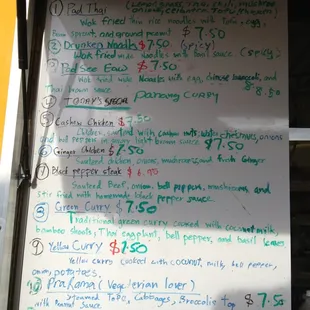 ① Pad Thai
Wok fried thin rice noodles with Tofu, egg,
Bean sprout, and ground peanut $7.50
② Drunken Noodles $7.50 (spicy)
Wok fried wide noodles with basil sauce (spicy)
③ Pad See Eaw $7.50
Wok fried wide Noodles with egg, chinese broccoli, and
Thai brown sauce
8.50
④ TODAY'S SPECIAL Panang CURRY
⑤ Cashew Chicken $7.50
Chicken, sauteed with cashew nuts, water chestnuts, onions
and bell peppers in light brown sauce $7.50
⑥ Ginger Chicken $7.50
Sauteed chicken, onion, mushrooms and fresh Ginger
⑦ Black pepper steak $
Sauteed Beef, onion, bell peppers, mushrooms and
stir fried with homemade black pepper sauce
⑧ Green Curry $7.50
Traditional green curry cooked with coconut milk,
bamboo shoots, Thai eggplant, bell pepper, and basil leaves
⑨ Yellow Curry $7.50
Yellow curry cooked with coconut, milk, bell pepper,
onion, potatoes,
⑩ Pra Rama (Vegeterian lover)
Steamed Tofo, Cabbages, Broccolie top $7.50
with Peanut Sauce